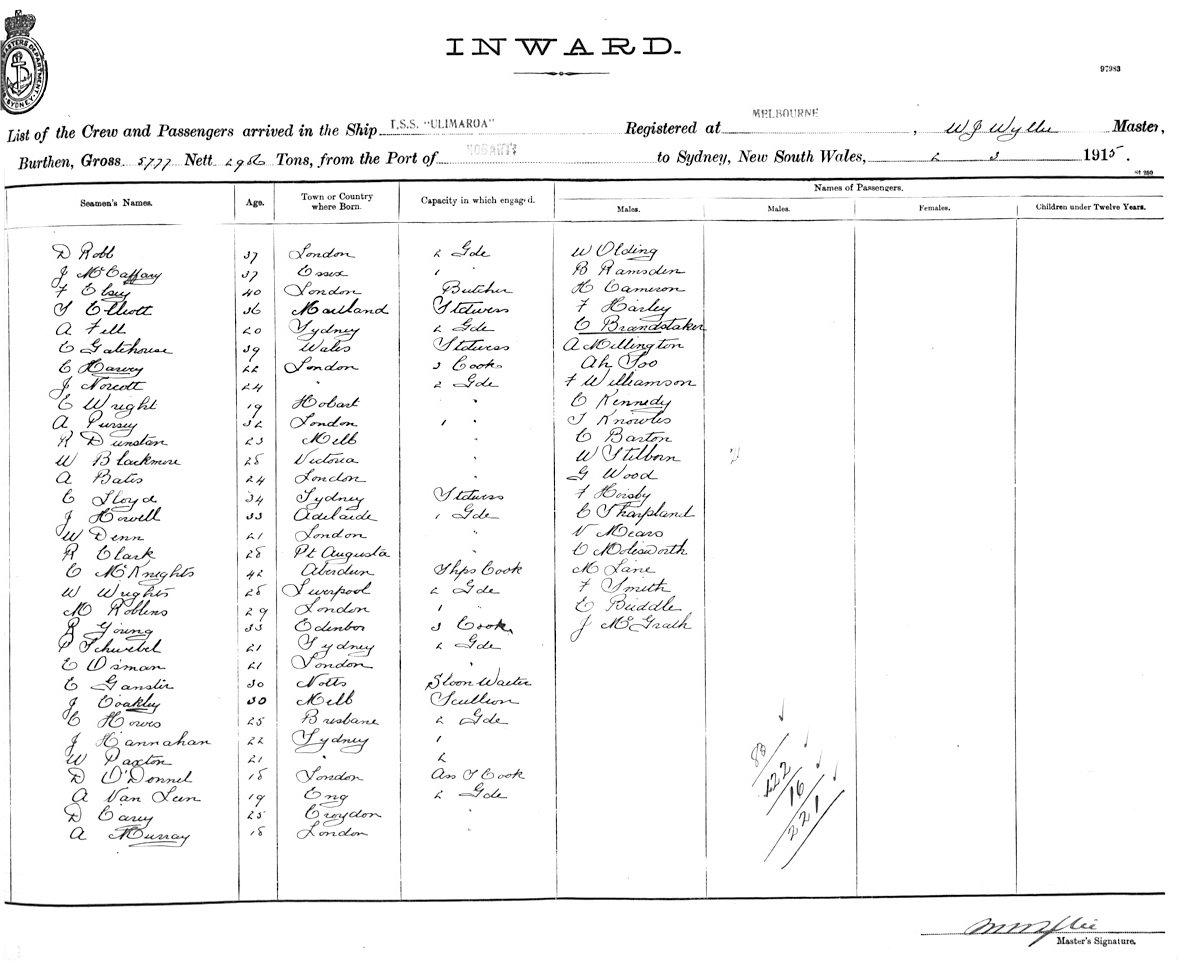 INWARD.
97983
List of the Crew and Passengers arrived in the Ship T.S.S. "ULIMAROA" Registered at MELBOURNE, W J Wyllie Master,
Burthen, Gross 5777 Nett 2956 Tons, from the Port of HOBART to Sydney, New South Wales, 2 3 1915.
St 250
Seamen's Names. Age. Town or Country where Born. Capacity in which engaged. Names of Passengers.
Males. Males. Females. Children under Twelve Years.
D Robb 37 London 2 Gde W Olding
J McCaffary 37 Essex 1 " B Ramsden
F Elsey 40 London Butcher H Cameron
S Elliott 36 Maitland Stdwess F Harley
A Fell 20 Sydney 2 Gde C Brandstaker
C Gatehouse 39 Wales Stdwess A Millington
C Harvey 22 London 3 Cook Ah Soo
J Norcott 24 " 2 Gde F Williamson
C Wright 19 Hobart " C Kennedy
A Pursey 32 London 1 " T Knowles
R Dunstan 23 Melb " C Barton
W Blackmore 28 Victoria " W Stilborn
A Bates 24 London " G Wood
C Lloyd 34 Sydney Stdwess F Horsby
J Howell 33 Adelaide 1 Gde C Tharpland
W Denn 21 London " V Mears
R Clark 28 Pt Augusta " C Molesworth
C McKnights 42 Aberdeen Shps Cook M Lane
W Wrights 28 Liverpool 2 Gde F Smith
M Robbins 29 London 1 " C Buddle
R Young 33 Edenbor 3 Cook J McGrath
P Schwebel 21 Sydney 2 Gde
C Osman 21 London
C Ganstir 30 Notts Sloon Waiter
J Coakley 30 Melb Scullion
C Howes 25 Brisbane 2 Gde
J Hannahan 22 Sydney 1
W Paxton 21 " 2
D O'Donnel 18 London Ass S Cook
A Van Leen 19 Eng 2 Gde
D Carey 25 Croydon "
A Murray 18 London
122
16
221
Master's Signature.